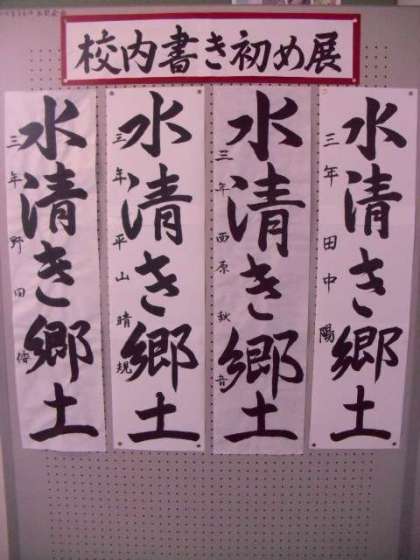 校内書き初め展
水清き郷土
三年 田中 陽
水清き郷土
三年 西原 秋音
水清き郷土
三年 平山 晴規
水清き郷土
三年 野田